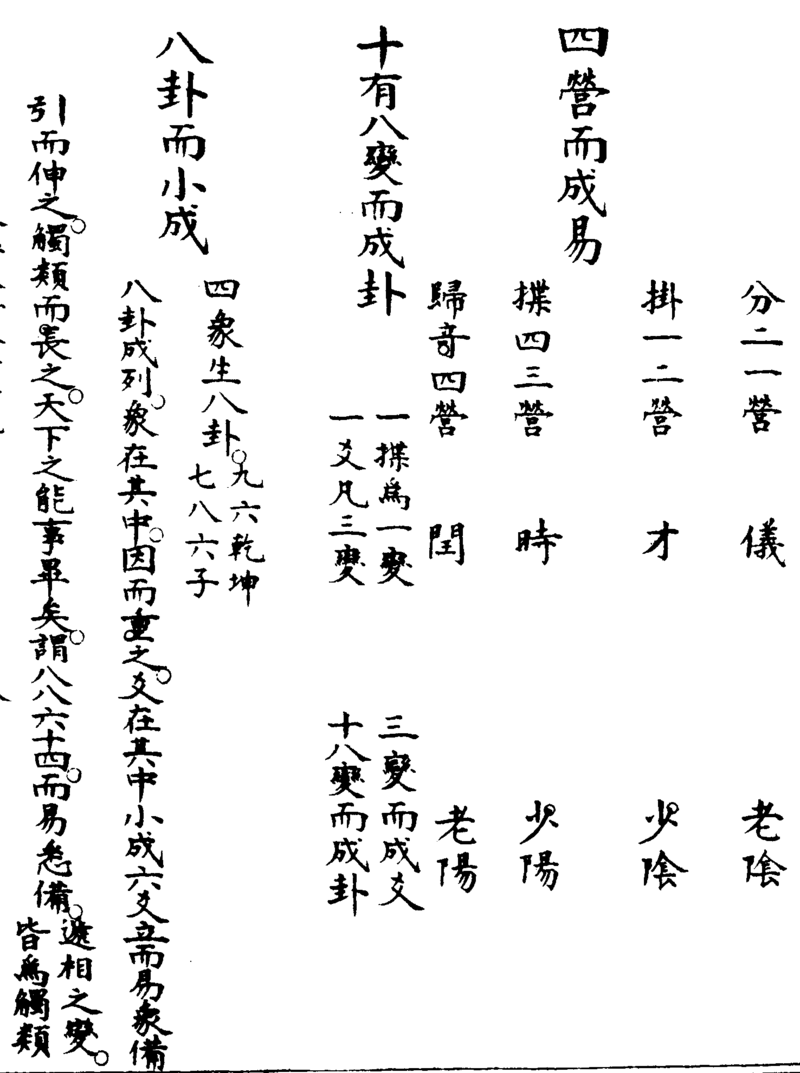 四營而成易
分二一營 儀 老陰
掛一二營 才 少陰
揲四三營 時 少陽
歸奇四營 閏 老陽
十有八變而成卦
一揲爲一變 三變而成爻
一爻凡三變 十八變而成卦
八卦而小成
四象生八卦。九六乾坤
七八六子
八卦成列。象在其中。因而重之。爻在其中小成六爻立而易象備
引而伸之。觸類而長之。天下之能事畢矣。謂八八六十四。而易悉備。遞相之變。
皆爲觸類